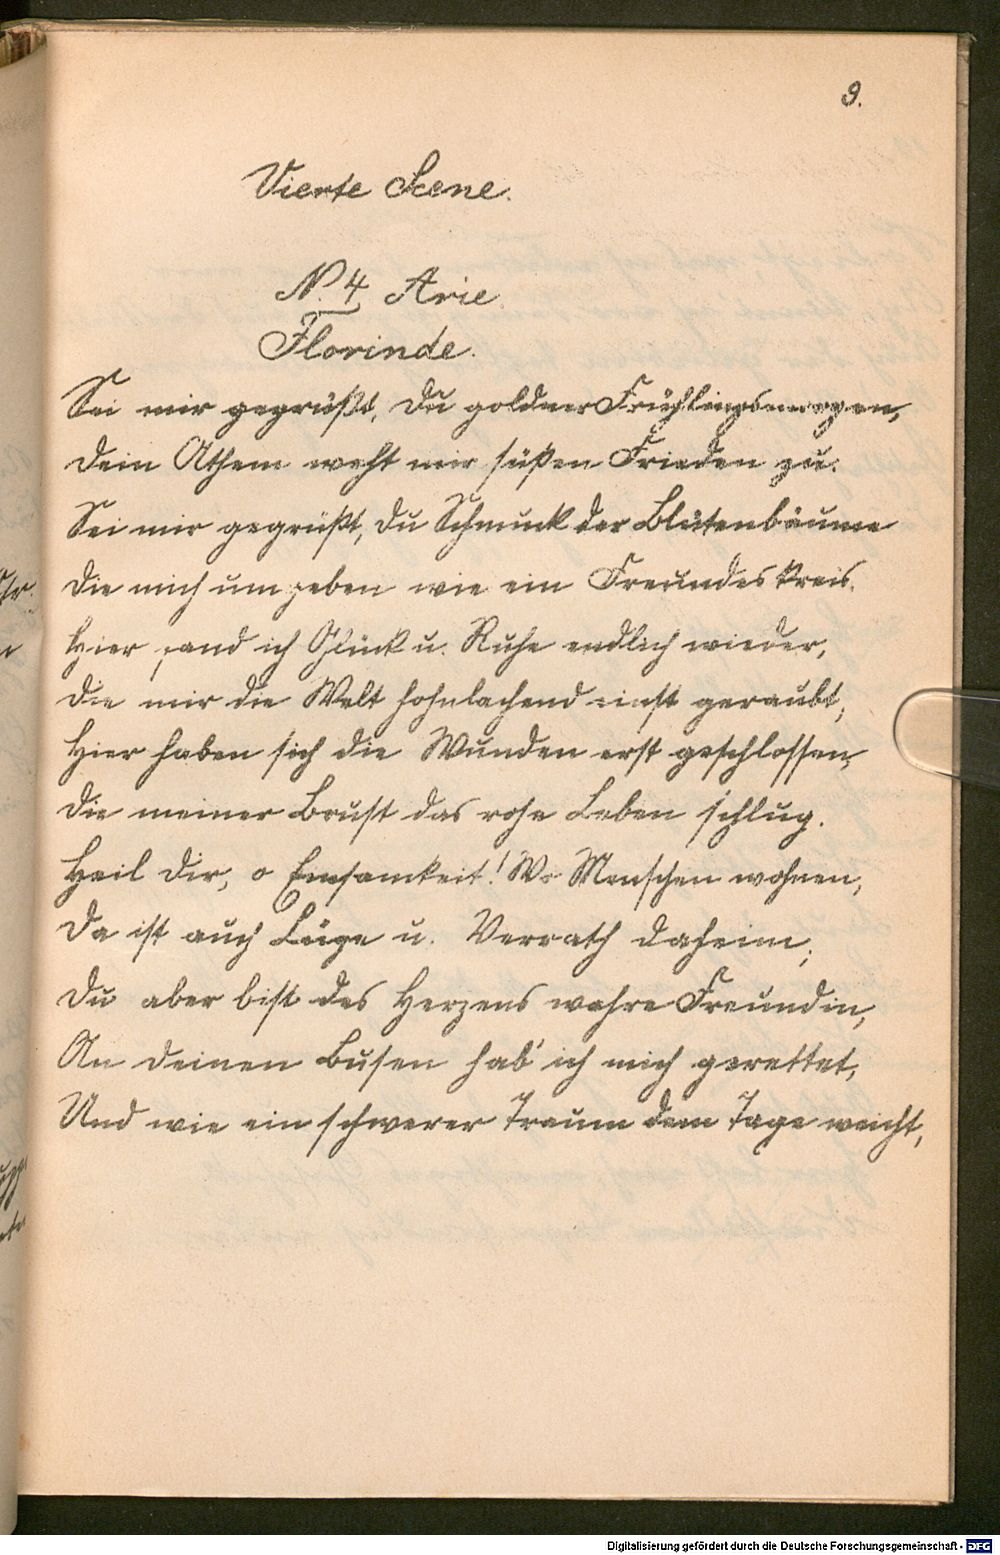 9.
Vierte Scene.
N. 4 Arie.
Florinde.
Sei mir gegrüßt, du goldner Frühlingsmorgen,
Dein Athem weht mir süßen Frieden zu.
Sei mir gegrüßt, du Schmuck der Blütenbäume
Die mich umgeben wie ein Freundeskreis.
Hier fand ich Glück u. Ruhe endlich wieder,
Die mir die Welt hohnlachend einst geraubt;
Hier haben sich die Wunden erst geschlossen,
Die meiner Brust das rohe Leben schlug.
Heil dir, o Einsamkeit! Wo Menschen wohnen,
Da ist auch Lüge u. Verrath daheim;
Du aber bist des Herzens wahre Freundin,
An deinen Busen hab' ich mich gerettet,
Und wie ein schwerer Traum dem Tage weicht,
Digitalisierung gefördert durch die Deutsche Forschungsgemeinschaft - DFG